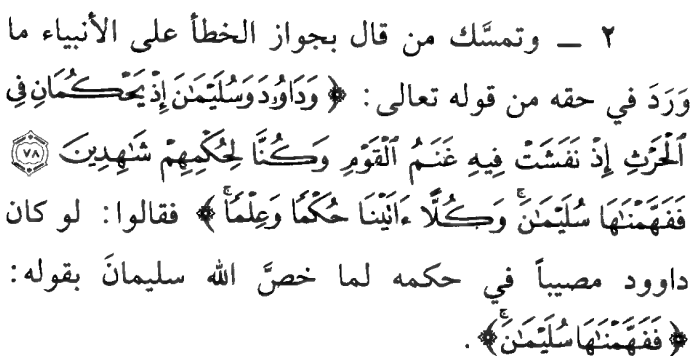 ٢ ـ وتمسَّك من قال بجواز الخطأ على الأنبياء ما
وَرَدَ في حقه من قوله تعالى: ﴿ وَدَاوُۥدَ وَسُلَيْمَٰنَ إِذْ يَحْكُمَانِ فِي
ٱلْحَرْثِ إِذْ نَفَشَتْ فِيهِ غَنَمُ ٱلْقَوْمِ وَكُنَّا لِحُكْمِهِمْ شَٰهِدِينَ ٧٨
فَفَهَّمْنَٰهَا سُلَيْمَٰنَۚ وَكُلًّا ءَاتَيْنَا حُكْمًا وَعِلْمًاۚ ﴾ فقالوا: لو كان
داوود مصيباً في حكمه لما خصَّ الله سليمانَ بقوله:
﴿ فَفَهَّمْنَٰهَا سُلَيْمَٰنَۚ ﴾ .